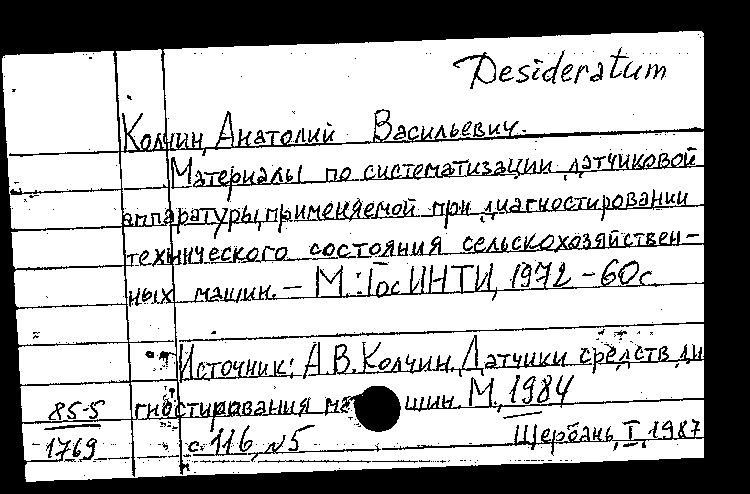 Desideratum
Колчин, Анатолий Васильевич.
Материалы по систематизации датчиковой
аппаратуры, применяемой при диагностировании
технического состояния сельскохозяйствен-
ных машин. – М.: ГосИНТИ, 1972 – 60с.
Источник: А.В. Колчин, Датчики средств ди
85-5 гностирования машин. М., 1984
1769 с. 116, №5 Щербань, I, 1987